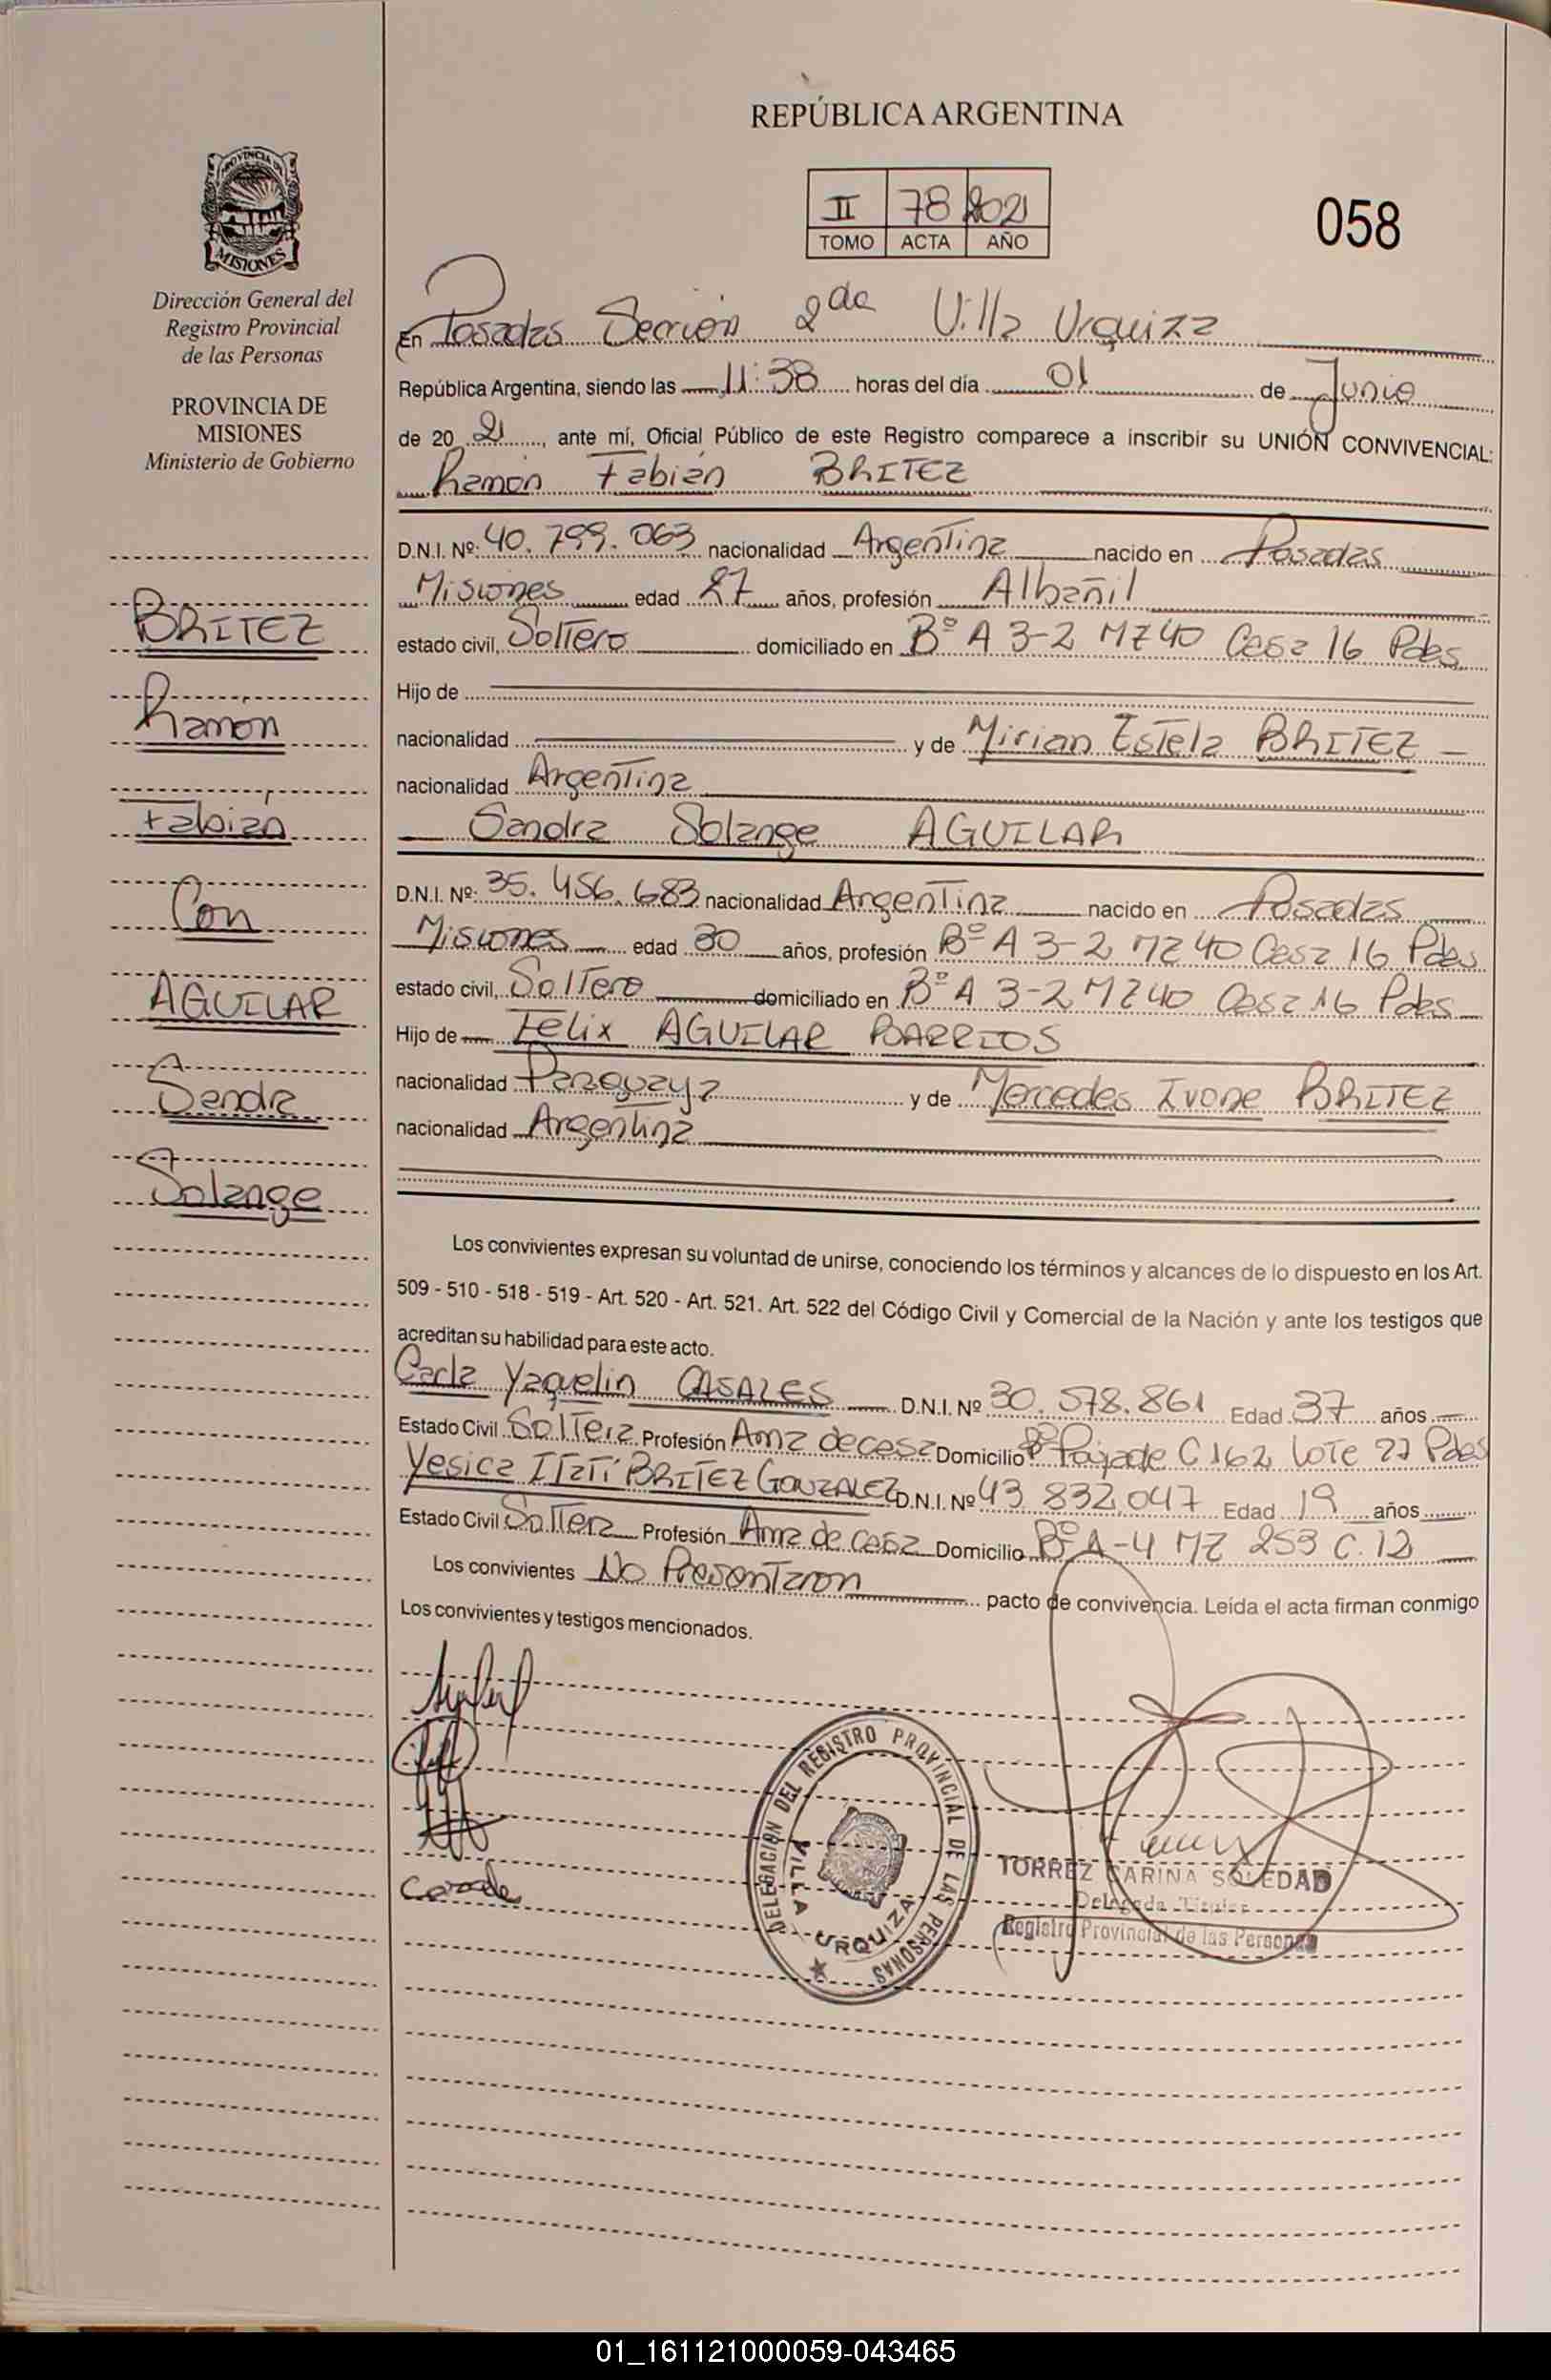 REPÚBLICA ARGENTINA
II 78 2021
TOMO ACTA AÑO
058
PROVINCIA DE
MISIONES
Dirección General del
Registro Provincial
de las Personas
PROVINCIA DE
MISIONES
Ministerio de Gobierno
BRITEZ
Ramón
Fabián
Con
AGUILAR
Sandra
Solange
En Posadas Sección 2da Villa Urquiza
República Argentina, siendo las 11:38 horas del día 01 de Junio
de 20 21, ante mí, Oficial Público de este Registro comparece a inscribir su UNIÓN CONVIVENCIAL:
Ramón Fabián BRITEZ
D.N.I. Nº: 40.799.063 nacionalidad Argentina nacido en Posadas
Misiones edad 27 años, profesión Albañil
estado civil, Soltero domiciliado en Bº A 3-2 MZ40 Casa 16 Pdas
Hijo de
nacionalidad y de Mirian Estela BRITEZ
nacionalidad Argentina
Sandra Solange AGUILAR
D.N.I. Nº: 35.456.683 nacionalidad Argentina nacido en Posadas
Misiones edad 30 años, profesión Bº A 3-2 MZ 40 Casa 16 Pdas
estado civil, Soltero domiciliado en Bº A 3-2 MZ40 Casa 16 Pdas
Hijo de Felix AGUILAR BARRIOS
nacionalidad Paraguaya y de Mercedes Ivone BRITEZ
nacionalidad Argentina
Los convivientes expresan su voluntad de unirse, conociendo los términos y alcances de lo dispuesto en los Art.
509 - 510 - 518 - 519 - Art. 520 - Art. 521. Art. 522 del Código Civil y Comercial de la Nación y ante los testigos que
acreditan su habilidad para este acto.
Carla Yaquelin CASALES D.N.I. Nº 30.578.861 Edad 37 años
Estado Civil Soltera Profesión Ama de casa Domicilio Bº C 162 Lote 27 Pdas
Yesica Itatí BRITEZ GONZALEZ D.N.I. Nº 43.832.047 Edad 19 años
Estado Civil Soltera Profesión Ama de casa Domicilio Bº A-4 MZ 253 C.12
Los convivientes No Presentaron pacto de convivencia. Leída el acta firman conmigo
Los convivientes y testigos mencionados.
DELEGACION DEL REGISTRO PROVINCIAL DE LAS PERSONAS
VILLA URQUIZA
TORREZ CARINA SOLEDAD
Delegada Titular
Registro Provincial de las Personas
01_161121000059-043465